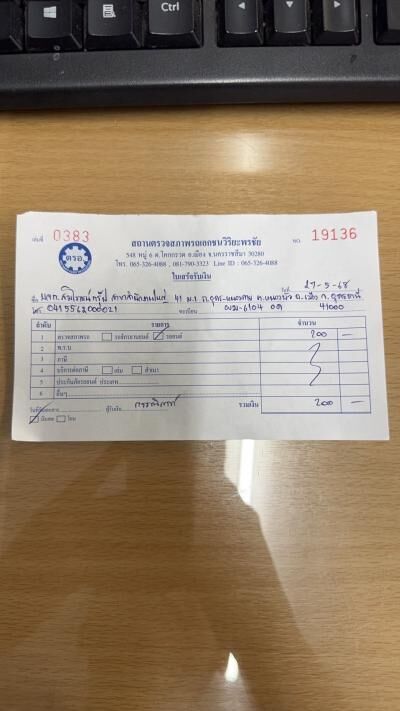 Ctrl
เล่มที่ 0383
ตรอ.
สถานตรวจสภาพรถเอกชนวิริยะพรชัย
NO. 19136
548 หมู่ 6 ต.โคกกรวด อ.เมือง จ.นครราชสีมา 30280
โทร. 065-326-4088 , 081-790-3323 Line ID : 065-326-4088
ใบเสร็จรับเงิน
วันที่ 27-5-68
ชื่อ หจก. สำนักงานใหญ่ 41 ม.1 ถ.อุดร-หนองคาย ต.หมากแข้ง อ.เมือง จ.อุดรธานี
โทร. 0415562000021 ทะเบียน 6104 41000
ลำดับ รายการ จำนวน
1 ตรวจสภาพรถ รถจักรยานยนต์ รถยนต์ 200 —
2 พ.ร.บ.
3 ภาษี
4 บริการต่อภาษี เล่ม สำเนา
5 ประกันภัยรถยนต์ ประเภท
6 อื่นๆ
ผู้รับเงิน รวมเงิน 200 —
เงินสด โอน